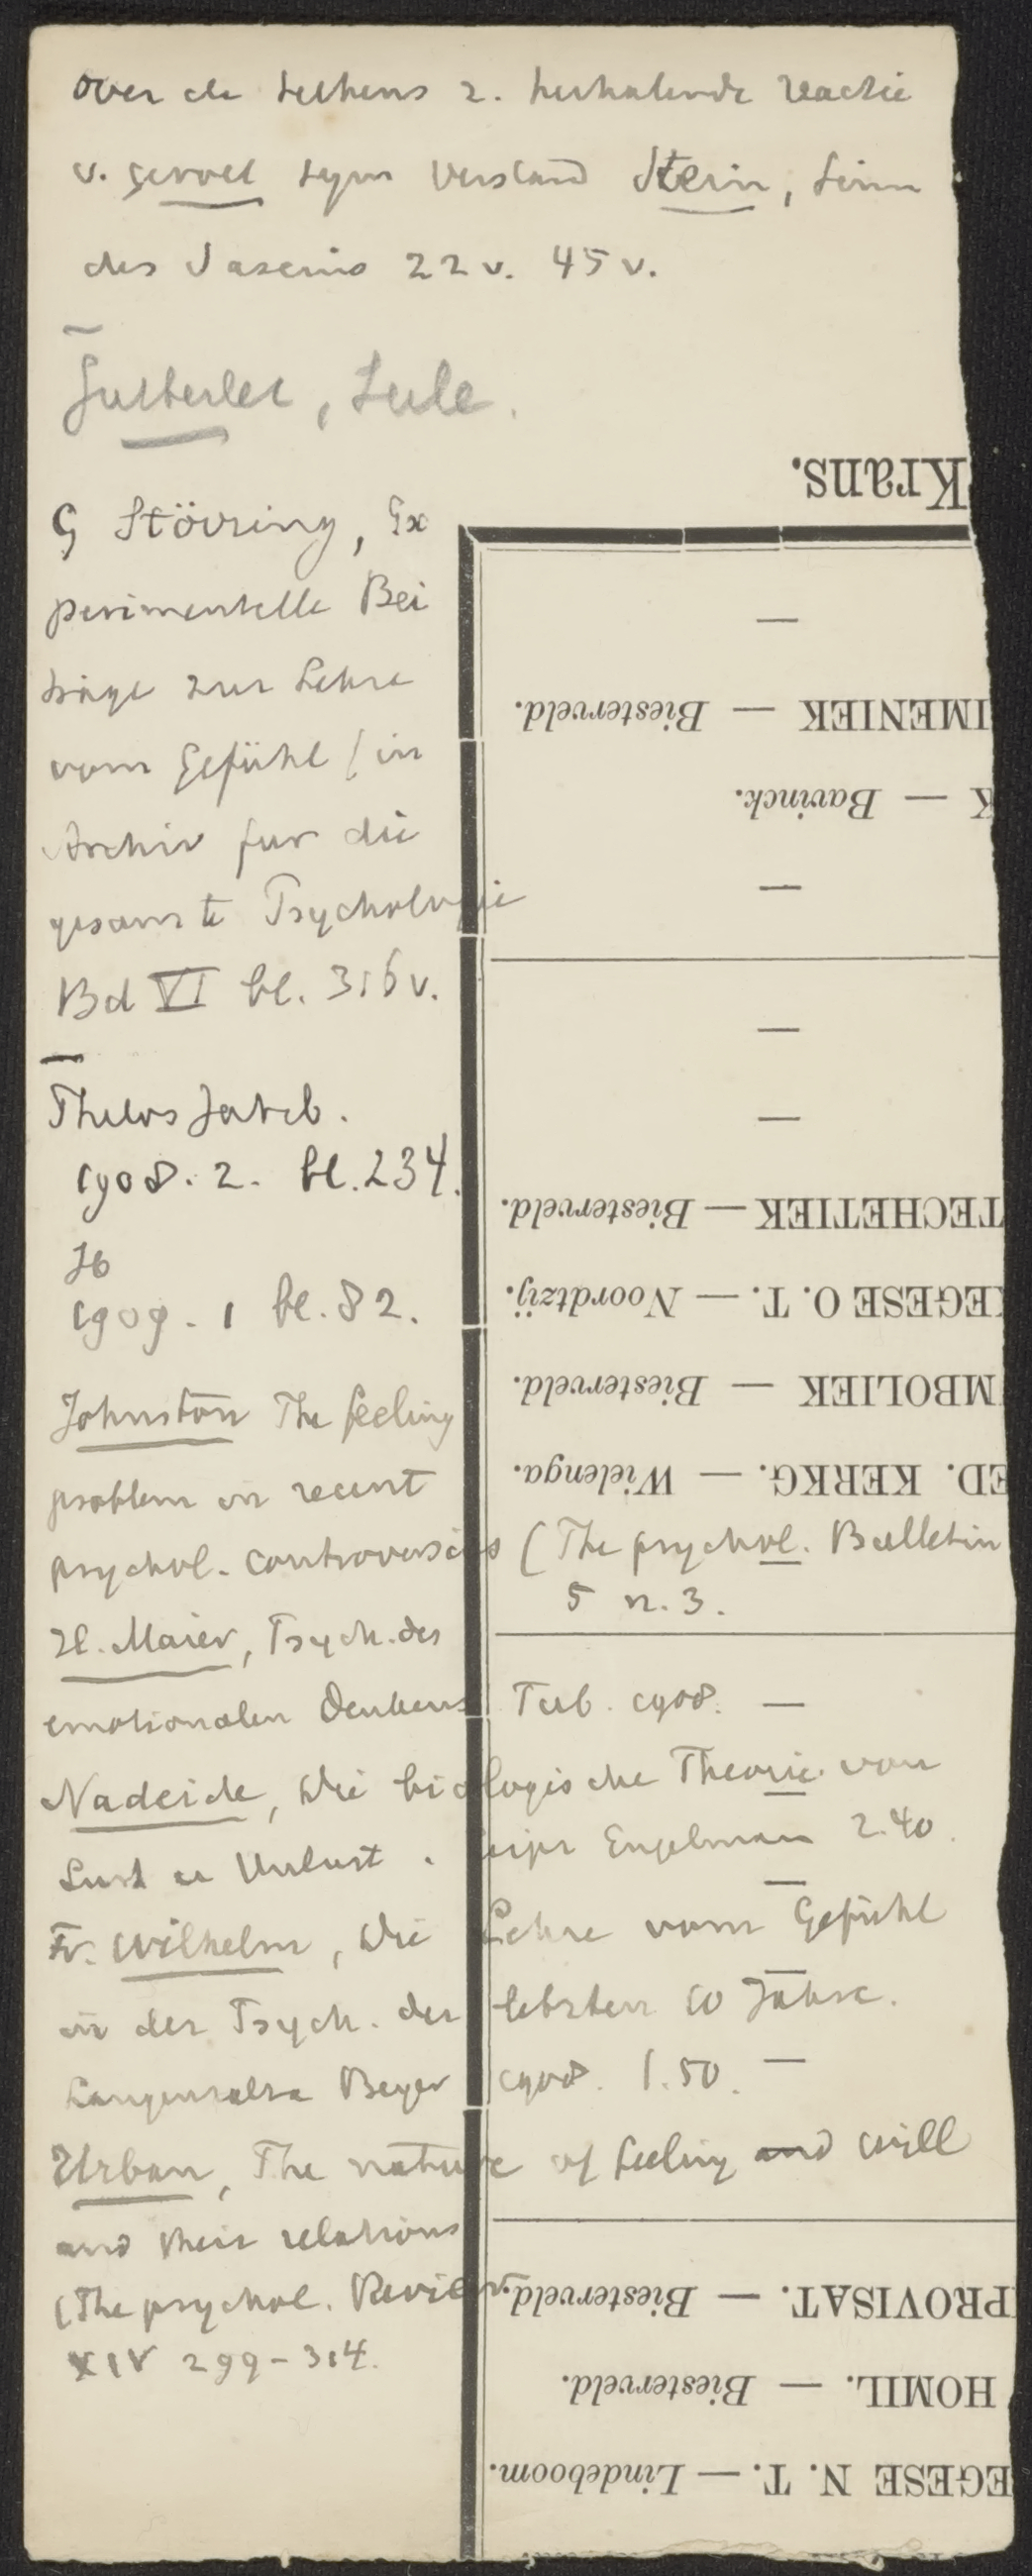 over de telkens z. herhalende reactie
v. gevoel tegen verstand Stein, Sinn
des Daseins 22 v. 45 v.
Gutberlet, Seele.
G Störring, Ex
perimentelle Bei
träge zur Lehre
vom Gefühl (in
Archiv fur die
gesamte Psychologie
Bd VI bl. 316 v.
Theolog Jahrb.
1908. 2. bl. 234.
Ib
1909. 1 bl. 82.
Johnston The feeling
problem in recent
psychol. controversies (The psychol. Bulletin
5 n. 3.
H. Maier, Psych. des
emotionalen Denkens Tub. 1908.
Nadejde, Die biologische Theorie von
Lust u Unlust. Leipz Engelmann 2.40.
Fr. Wilhelm, Die Lehre vom Gefühl
in der Psych. der letzten 10 Jahre.
Langensalza Beyer 1908. 1.50.
Urban, The nature of feeling and will
and their relations
(The psychol. Review
XIV 299-314.
EGESE N. T. — Lindeboom.
HOMIL. — Biesterveld.
PROVISAT. — Biesterveld.
ED. KERKG. — Wielenga.
MBOLIEK — Biesterveld.
EGESE O. T. — Noordtzij.
TECHETIEK — Biesterveld.
—
—
—
K — Bavinck.
IMENIEK — Biesterveld.
—
Krans.